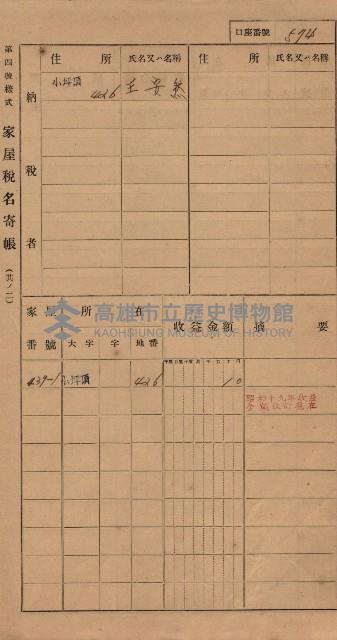 口座番號 574
第四號樣式 家屋稅名寄帳 (其ノ二)
納稅者
住所 氏名又ハ名稱 住所 氏名又ハ名稱
小坪頂 426 王安然
高雄市立歷史博物館
KAOHSIUNG MUSEUM OF HISTORY
家屋所在 收益金額 摘要
番號 大字 字 地番
439-1 小坪頂 426 10
昭和十九年收益